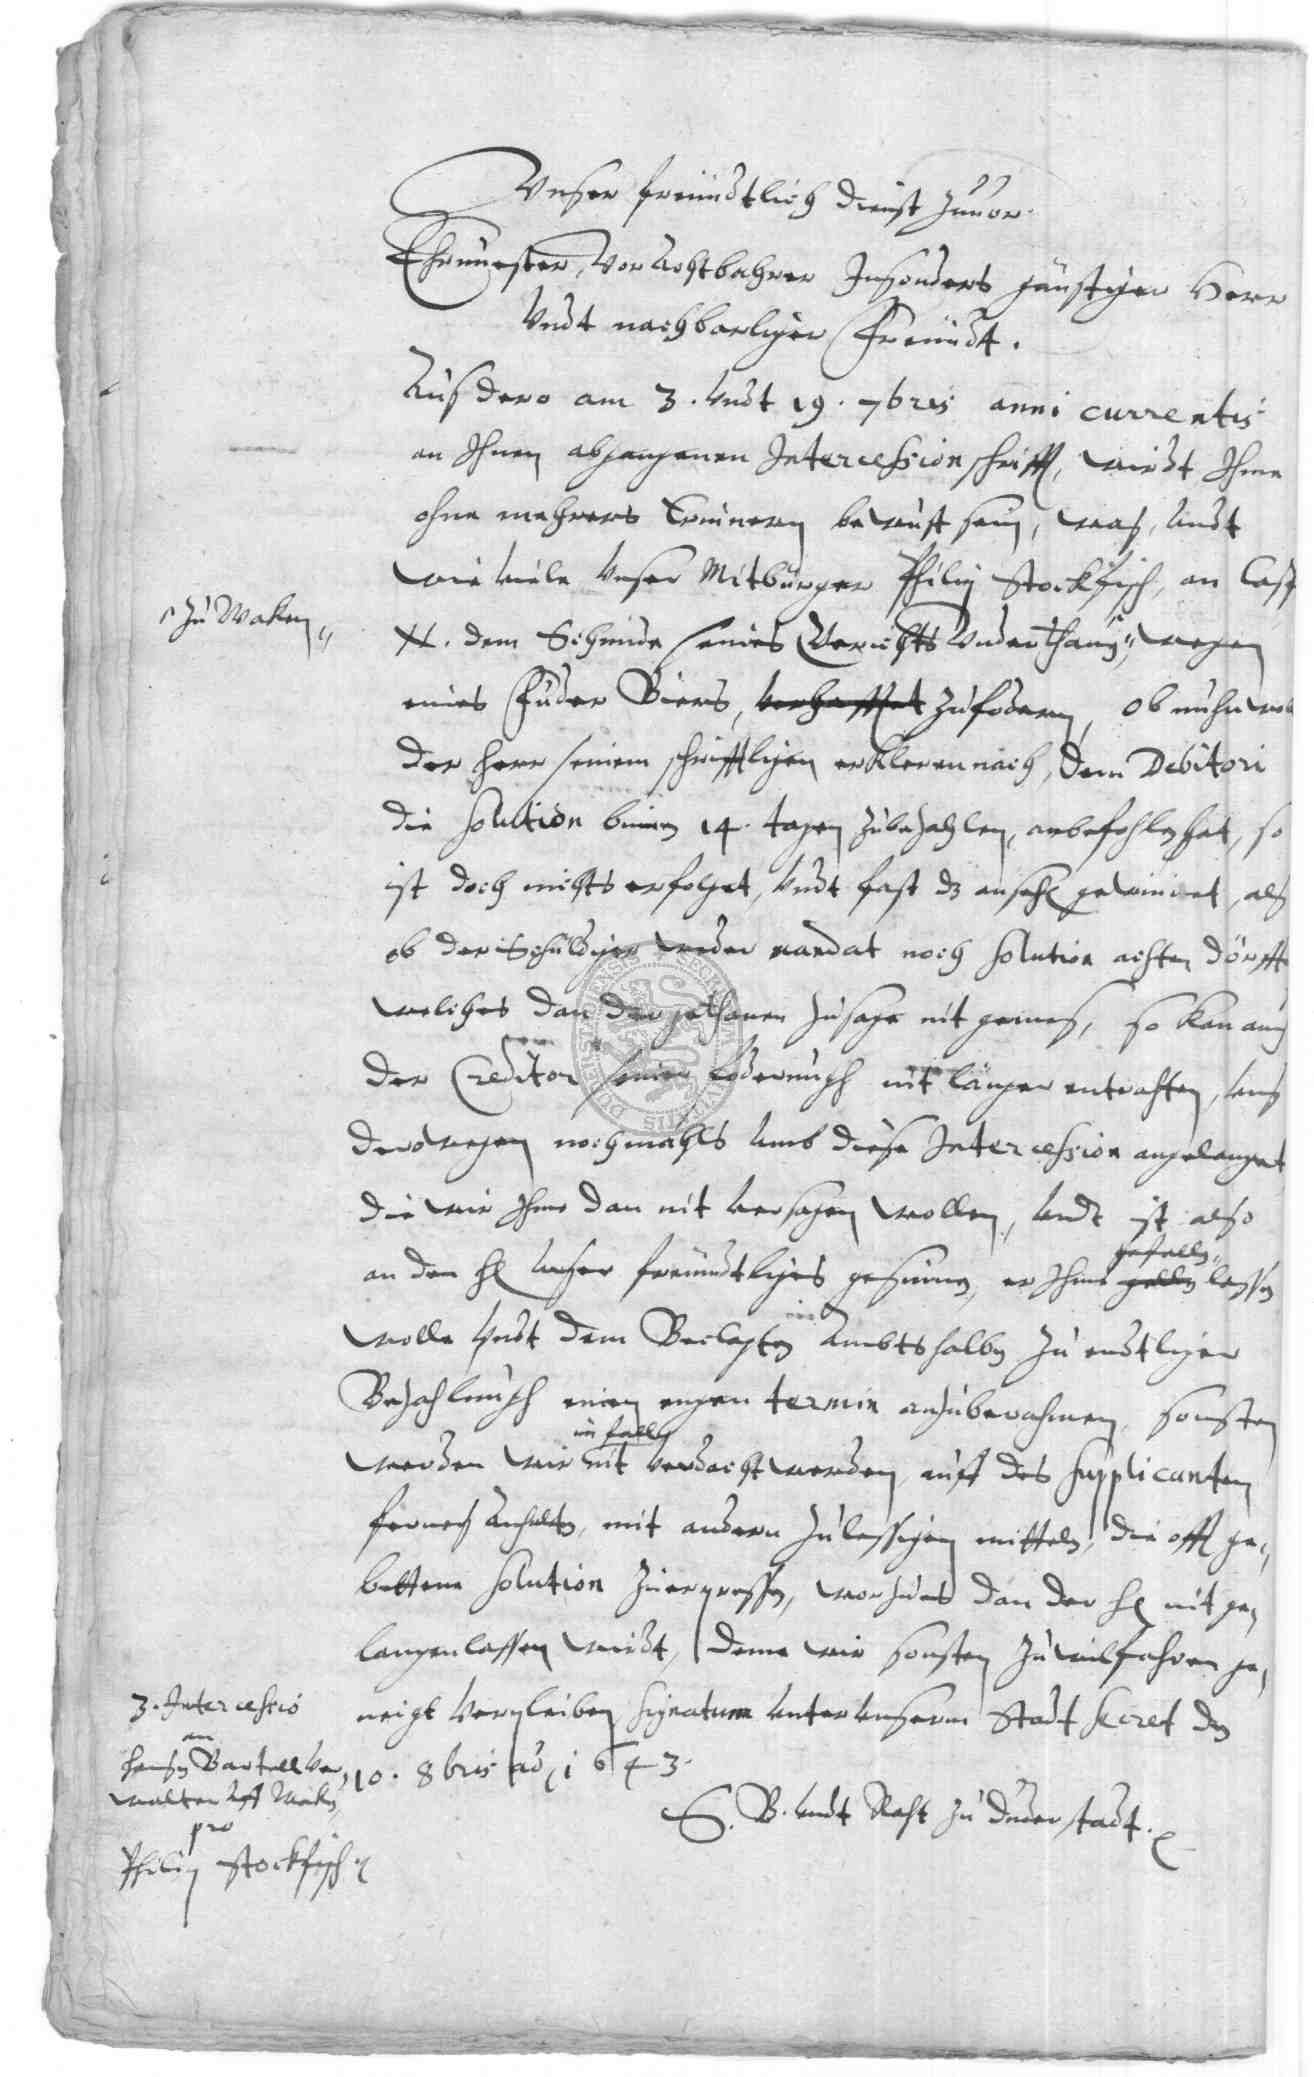 Vnser freundtlich dienst zuuor
Ehrnuester, Vor Achtbahrer Insonders günstiger Herr
Vndt nachbarliger Freundt.
Auß dero am 3. Vndt 19. 7bris anni currentis
an Ihnen abgangenen Intercession schrifft, wirdt Ihme
ohne mehrers Erinnern bewust sein, was, Vndt
wie viele Vnser Mitbürger Philip Stockfisch, an Casp
N. dem Schmide seines Gerichts Vnderthanen, wegen
zu Waken
eines Fuder Biers, verhafftet zufodern, ob nuhn wol
der Herr seinem schrifftligen erkleren nach, dem Debitori
die solution binnen 14. tagen zubezahlen, anbefohlen hat, so
ist doch nichts erfolget, Vndt fast dz ansehen gewinnet, als
ob der Schuldiger weder mandat noch solution achten dörffte
welches dan der gethanen zusage nit gemeß, so kan auch
der Creditor seiner foderungh nit länger entrahten, Vns
derowegen nochmahls Vmb diese Intercession angelanget
die wir Ihme dan nit versagen wollen, Vndt ist also
an den H. Vnser freundtliges gesinnen, er Ihme gefallen lassen
wolle Vndt dem Beclagten Ambtshalben zu endtliger
Bezahlungh einen engen termin anzuberahmen, sonsten
im fall
werden wir nit verdacht werden, auff des Supplicanten
fernes Anhalten, mit andern zulessigen mitteln, die offt ge-
bettene solution zuerpressen, worzu es dan der H. nit ge-
langen lassen wirdt, deme wir sonsten zu wilfahren ge-
neigt Verpleiben, Signatum Vnter Vnserm Stadt Secret den
10. 8bris ao 1643.
S. B. Vndt Raht zu Duderstadt.
3. Intercessio
an
Hansen Bartell Ver-
walter Vff Waken
pro
Philip Stockfisch